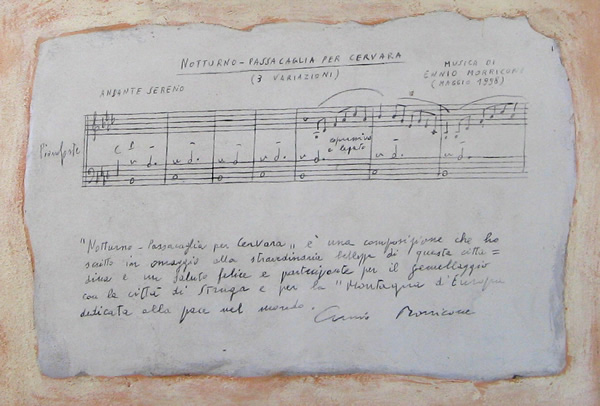 NOTTURNO-PASSACAGLIA PER CERVARA
(3 VARIAZIONI)
MUSICA DI
ENNIO MORRICONE
(MAGGIO 1998)
ANDANTE SERENO
Pianoforte
espressivo
e legato
"Notturno-Passacaglia per Cervara" è una composizione che ho
scritto in omaggio alla straordinaria bellezza di questa citta=
dina e un saluto felice e partecipante per il gemellaggio
con la città di Struga e per la "Montagna d'Europa
dedicata alla pace nel mondo. Ennio Morricone